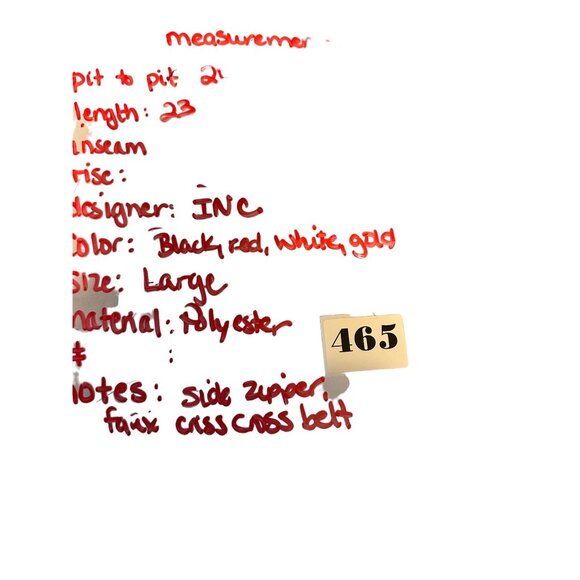 measuremer
pit to pit 21
length: 23
inseam
rise:
designer: INC
color: Black, red, white, gold
size: Large
material: Polyester
# :
465
notes: side zipper,
faux crisscross belt